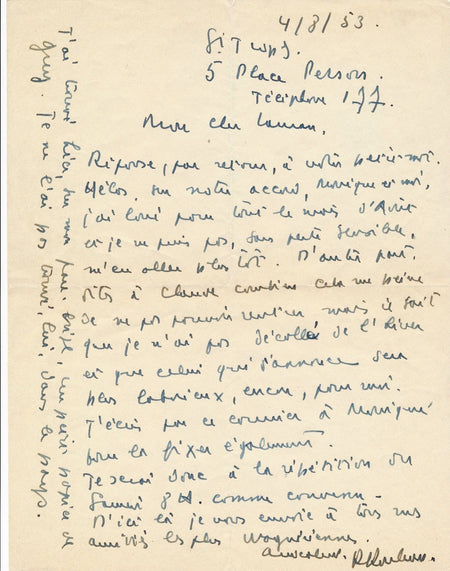 4/8/53.
St Trops.
5 Place Person.
Téléphone 177.
Mon cher
Réponse, par retour, à votre petit mot.
Hélas, sur notre accord, Monique et moi,
j'ai loué pour tout le mois d'Août
et je ne puis pas, sans perte sensible,
m'en aller plus tôt. D'autre part,
dites à Claude combien cela me peine
de ne pas pouvoir mais il sait
que je n'ai pas décollé de l'hiver
et que celui qui s'annonce sera
plus laborieux, encore, pour moi.
J'écris par ce courrier à Monique
pour la fixer également.
Je serai donc à la répétition du
Samedi 8 H. comme convenu -
D'ici là je vous envoie à tous mes
amitiés les plus
J'ai trouvé hier sur mon pare-brise, un petit papier de
Guy. Je ne l'ai pas trouvé, lui, dans le pays.